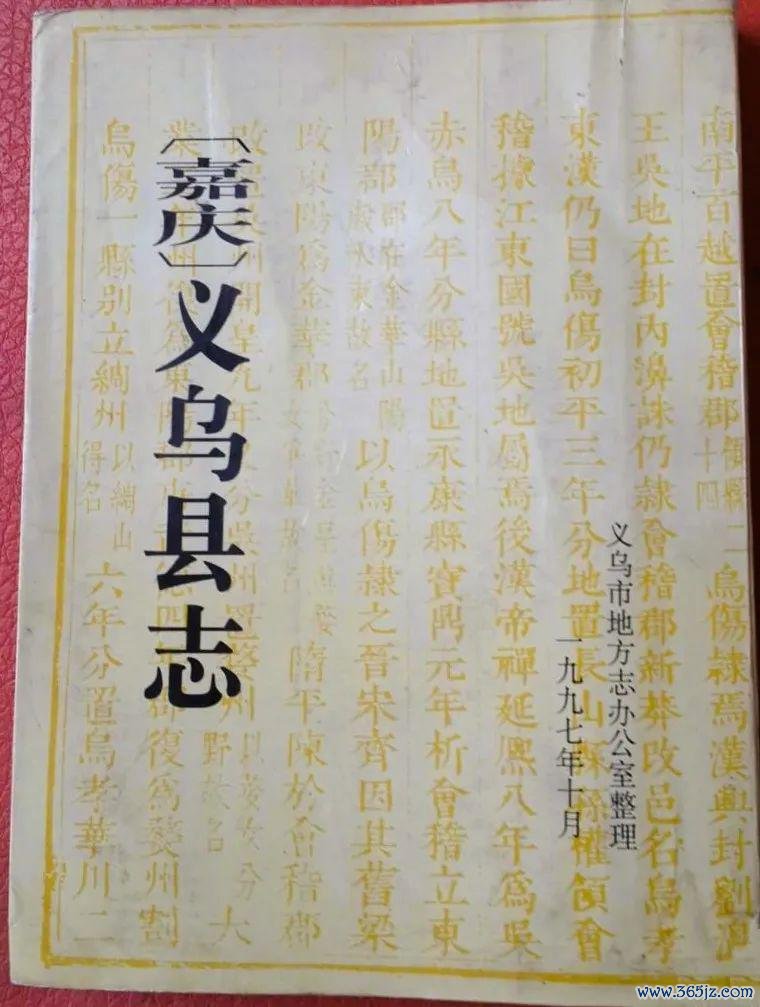 〔嘉庆〕义乌县志
义乌市地方志办公室整理
一九九七年十月
南平百越置會稽郡領縣二十四烏傷隸焉漢興封劉濞
王吳地在封內濞誅仍隸會稽郡新莽改邑名烏孝
東漢仍曰烏傷初平三年分地置長山縣孫權領會
稽據江東國號吳地屬焉後漢帝禪延熙八年爲吳
赤烏八年分縣地置永康縣寶鼎元年析會稽立東
陽郡郡在金華山陽瀫水東故名以烏傷隸之晉宋齊因其舊梁
改東陽爲金華郡隋平陳於會稽郡
州開皇九年分吳州置婺州以婺女分野故名大
業州復爲東陽郡復爲婺州割
烏傷一縣別立綢州以綢山得名六年分置烏孝華川二
www.365jz.com